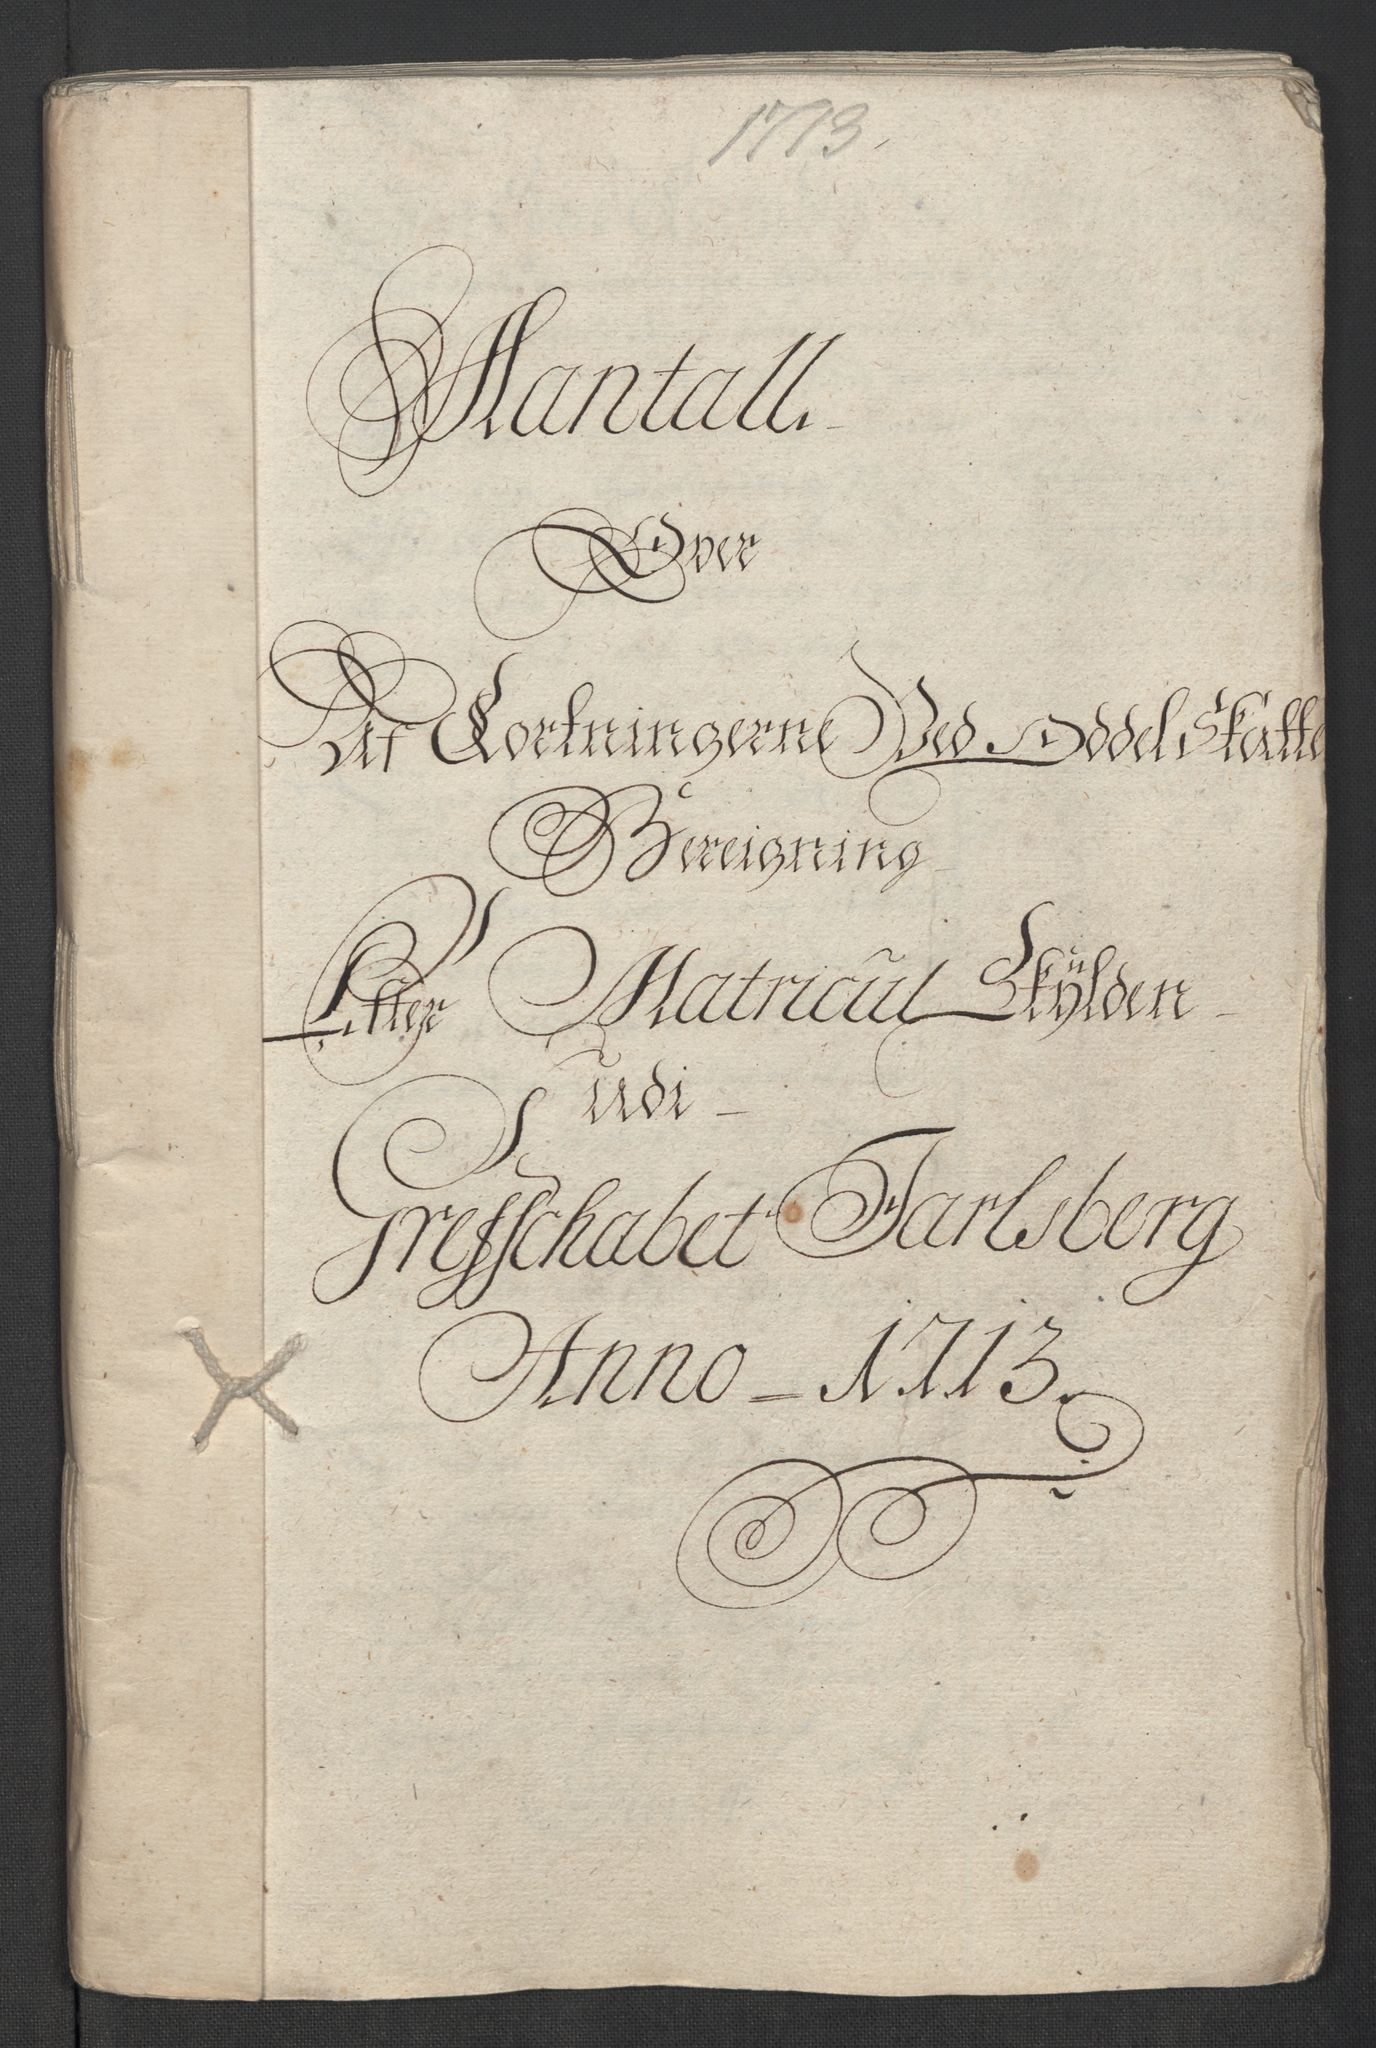 1713.
Mantall
Over
Af Kortningerne Ved Oddel Skatte
Bereigning
Efter Matricul Skÿlden
udi
Grefschabet Jarlsberg
Anno 1713.